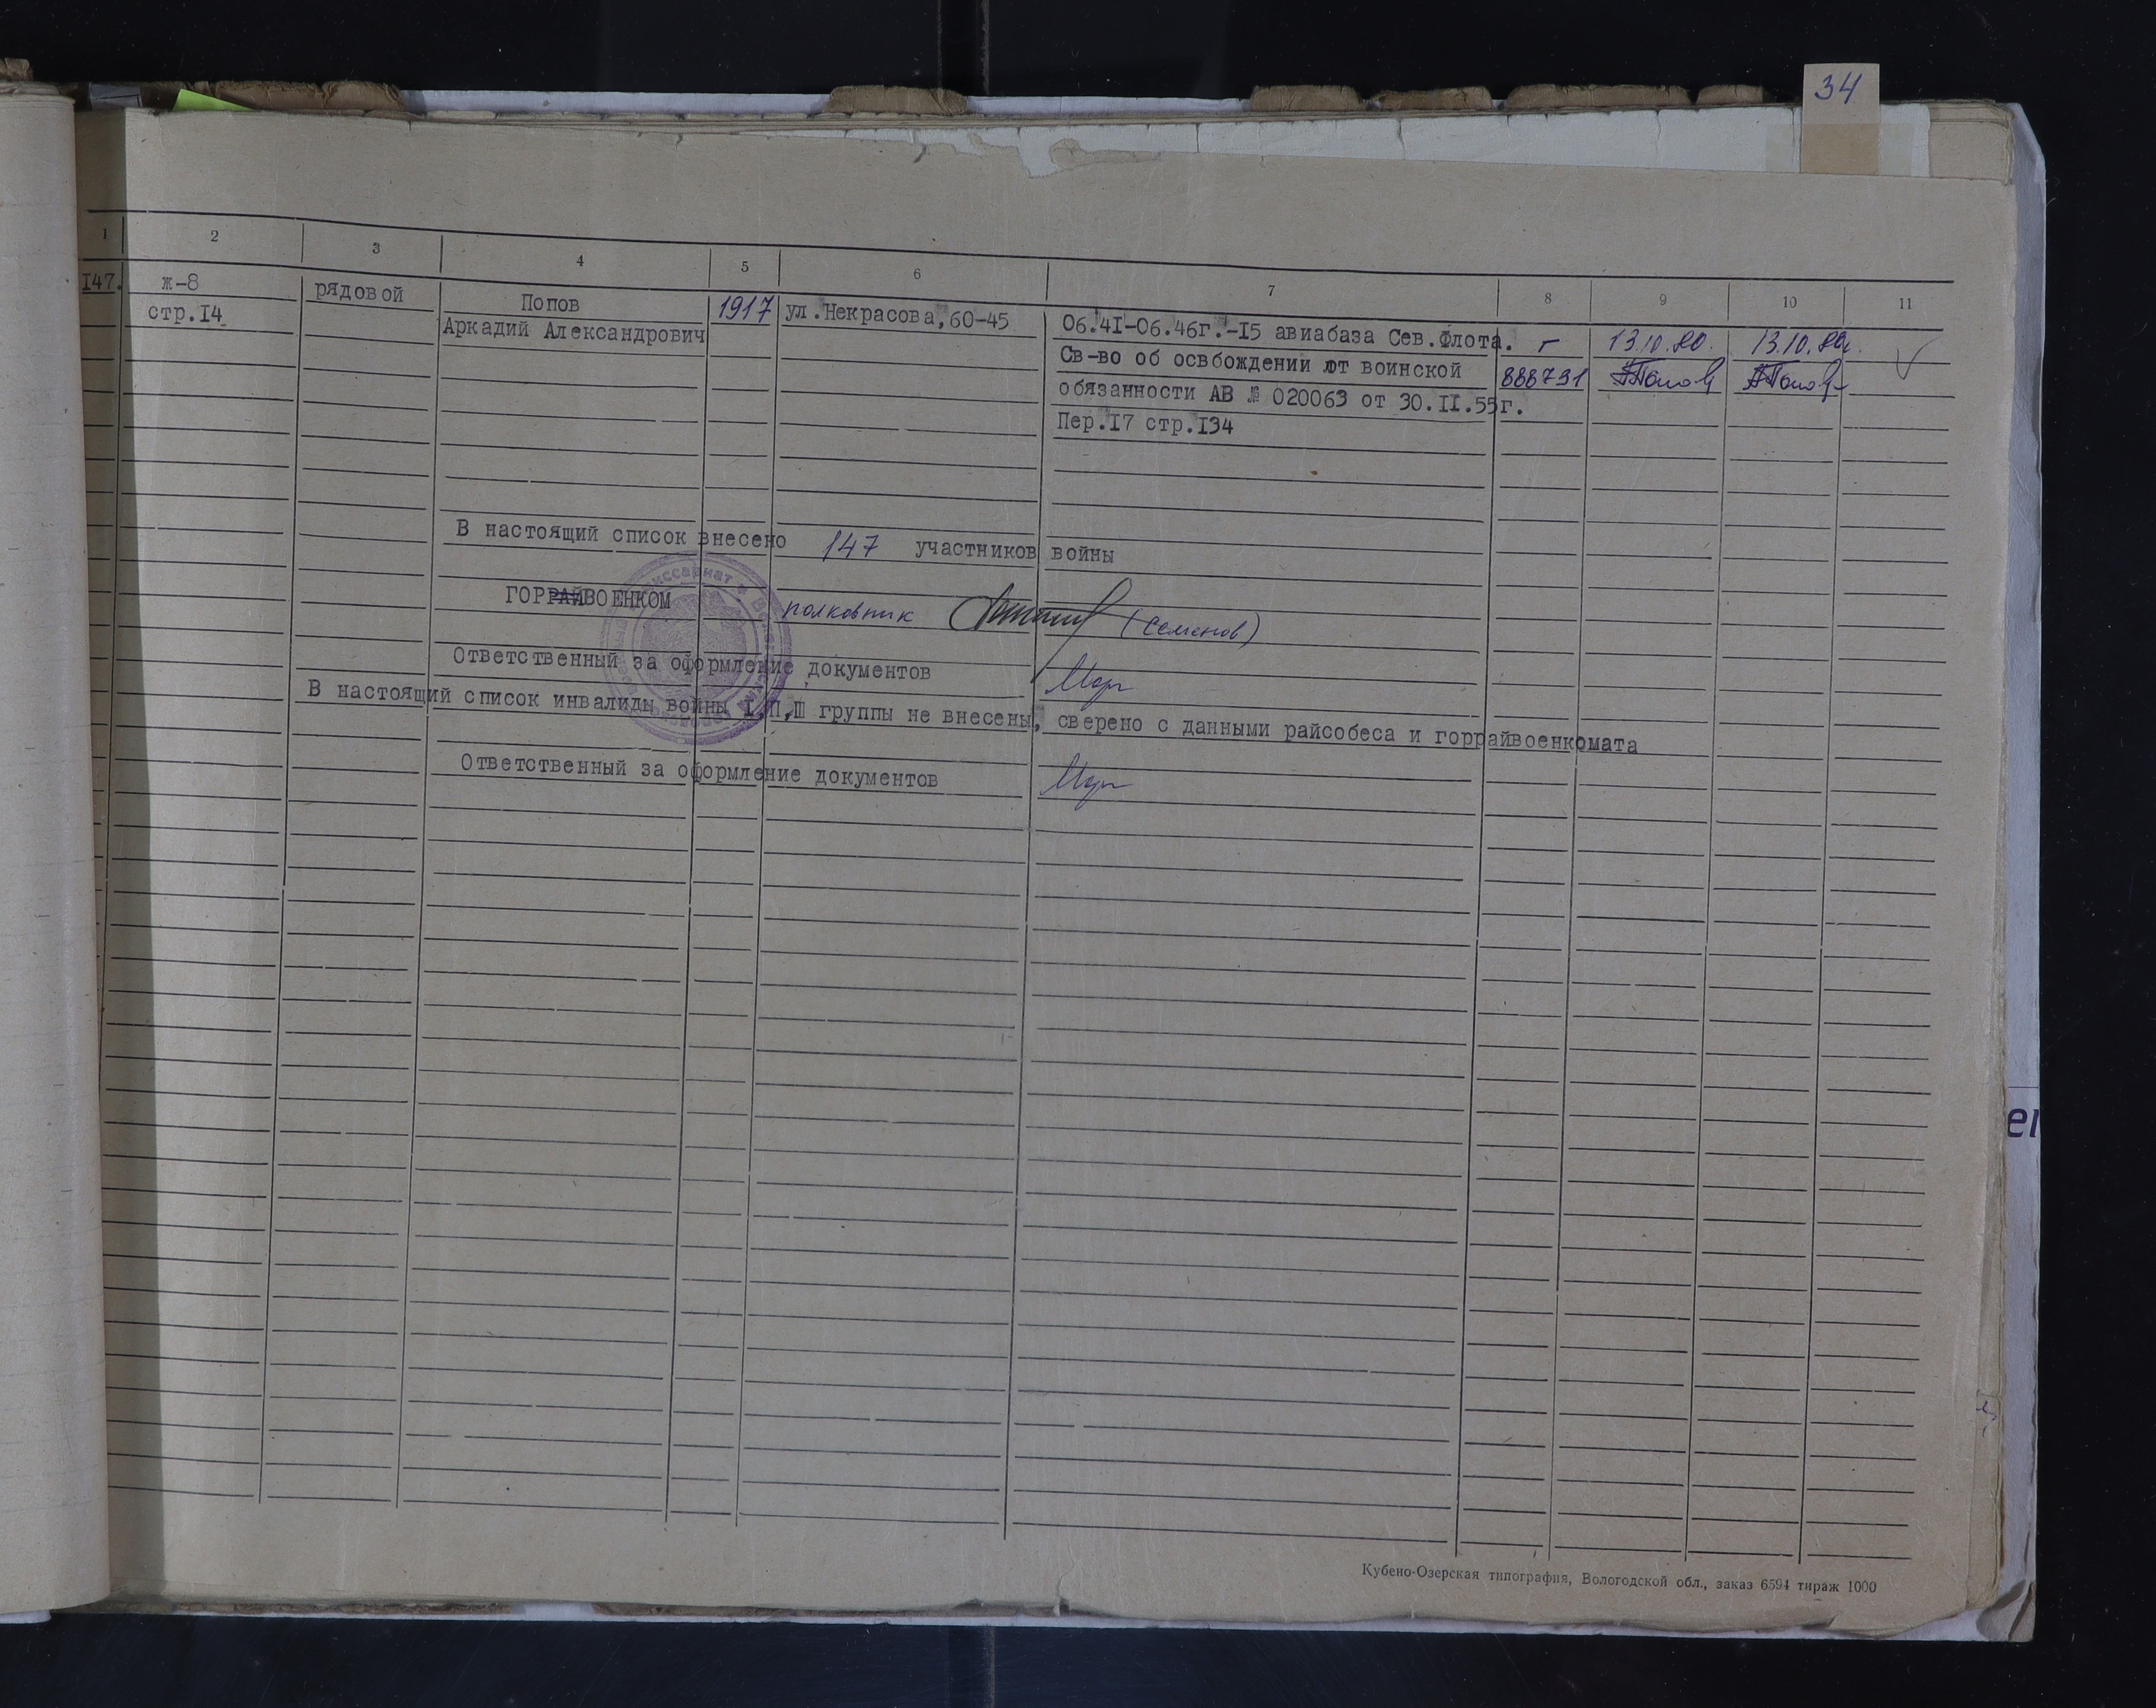 34
1 2 3 4 5 6 7 8 9 10 11
147. ж-8 рядовой Попов 1917 ул.Некрасова,60-45 06.41-06.46г.-15 авиабаза Сев.Флота. г 13.10.80. 13.10.80.
стр.14 Аркадий Александрович Св-во об освбождении от воинской 888731
обязанности АВ № 020063 от 30.II.55г.
Пер.17 стр.134
В настоящий список внесено 147 участников войны
ГОРРАЙВОЕНКОМ полковник (Семенов)
Ответственный за оформление документов
В настоящий список инвалиды войны I,П,Ш группы не внесены, сверено с данными райсобеса и горрайвоенкомата
Ответственный за оформление документов
Кубено-Озерская типография, Вологодской обл., заказ 6594 тираж 1000